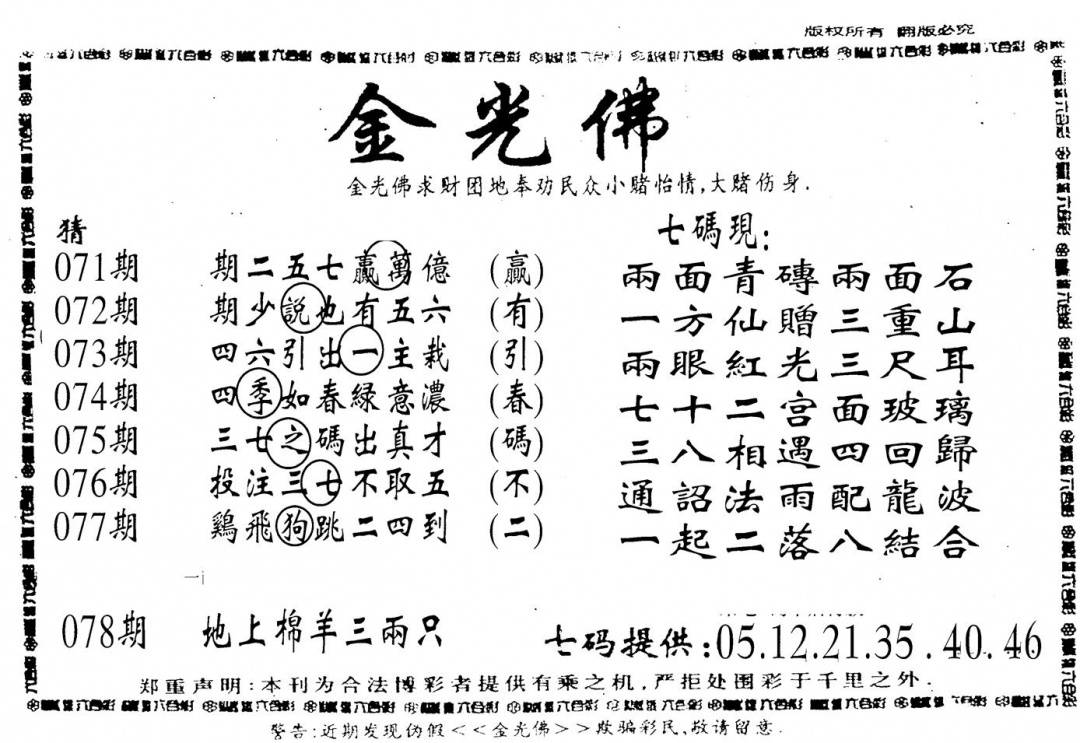 版权所有 翻版必究
金光佛
金光佛求财团地奉劝民众小赌怡情,大赌伤身.
猜
071期 期二五七贏萬億 (贏)
072期 期少説也有五六 (有)
073期 四六引出一主栽 (引)
074期 四季如春緑意濃 (春)
075期 三七之碼出真才 (碼)
076期 投注三七不取五 (不)
077期 鷄飛狗跳二四到 (二)
七碼現:
兩面青磚兩面石
一方仙贈三重山
兩眼紅光三尺耳
七十二宫面玻璃
三八相遇四回歸
通詔法雨配龍波
一起二落八結合
078期 地上棉羊三兩只
七码提供:05.12.21.35.40.46
郑重声明:本刊为合法博彩者提供有乘之机,严拒处围彩于千里之外.
警告:近期发现伪假<<金光佛>>欺骗彩民,敬请留意.